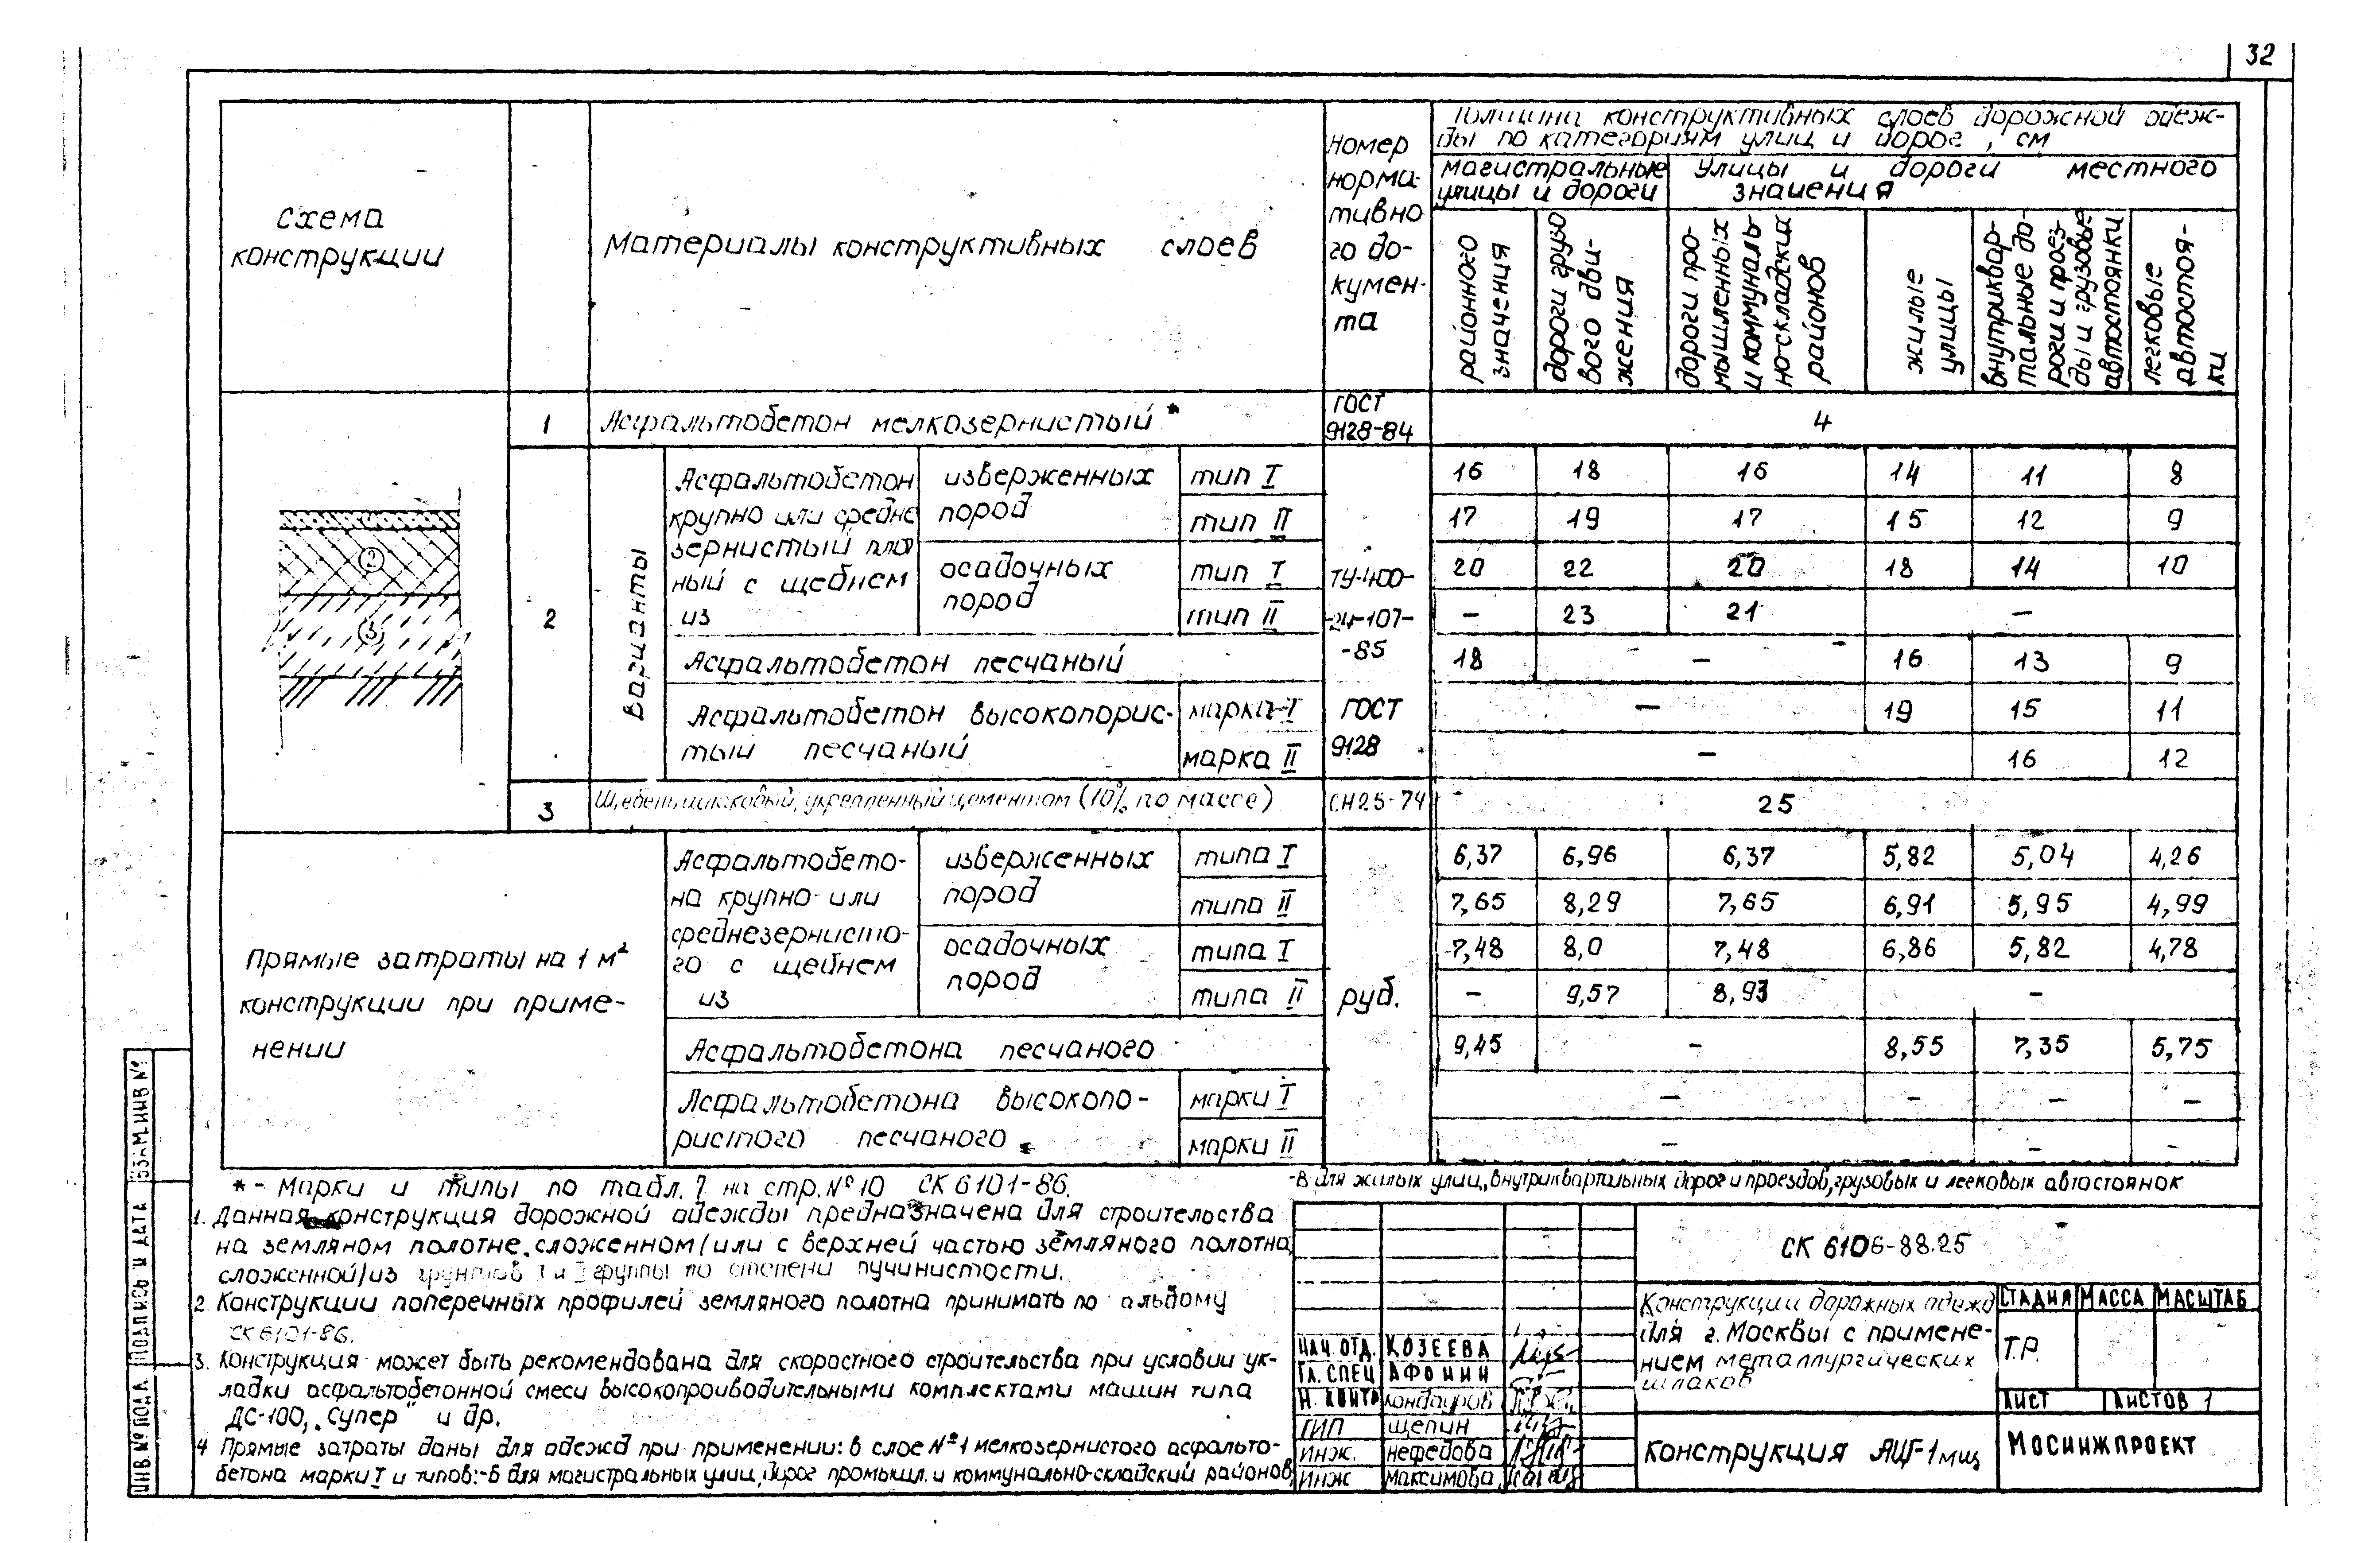 32
Схема
конструкции
Материалы конструктивных слоев
Номер
норма-
тивно
го до-
кумен-
та
Толщина конструктивных слоев дорожной одеж-
ды по категориям улиц и дорог, см
магистральные
улицы и дороги
Улицы и дороги местного
значения
районного
значения
дороги грузо
вого дви-
жения
дороги про-
мышленных
и коммуналь-
но-складских
районов
жилые
улицы
внутриквар-
тальные до-
роги и проез-
ды и грузовые
автостоянки
легковые
автостоя-
ки
1 Асфальтобетон мелкозернистый * ГОСТ 9128-84 4
2
Варианты
Асфальтобетон
крупно или средне
зернистый плот
ный с щебнем
из
изверженных
пород
осадочных
пород
ТУ-400-
-24-107-
-85
ГОСТ
9128
тип I 16 18 16 14 11 8
тип II 17 19 17 15 12 9
тип I 20 22 20 18 14 10
тип II – 23 21 –
Асфальтобетон песчаный 18 – 16 13 9
Асфальтобетон высокопорис-
тый песчаный
марка-I – 19 15 11
марка II – 16 12
3 Щебень шлаковый, укрепленный цементом (10% по массе) СН25-74 25
Прямые затраты на 1 м²
конструкции при приме-
нении
Асфальтобето-
на крупно- или
среднезернисто-
го с щебнем
из
изверженных
пород
осадочных
пород
руб.
типа I 6,37 6,96 6,37 5,82 5,04 4,26
типа II 7,65 8,29 7,65 6,91 5,95 4,99
типа I 7,48 8,0 7,48 6,86 5,82 4,78
типа II – 9,57 8,93 –
Асфальтобетона песчаного 9,45 – 8,55 7,35 5,75
Асфальтобетона высокопо-
ристого песчаного
марки I – – – –
марки II – – –
* - Марки и типы по табл. 7 на стр. № 10 СК 6101-86.
1. Данная конструкция дорожной одежды предназначена для строительства
на земляном полотне, сложенном (или с верхней частью земляного полотна,
сложенной) из грунтов I и I группы по степени пучинистости.
2. Конструкции поперечных профилей земляного полотна принимать по альбому
СК 6101-86.
3. Конструкция может быть рекомендована для скоростного строительства при условии ук-
ладки асфальтобетонной смеси высокопроизводительными комплектами машин типа
ДС-100, „Супер" и др.
4 Прямые затраты даны для одежд при применении: в слое №1 мелкозернистого асфальто-
бетона марки I и типов:-Б для магистральных улиц, дорог промышл. и коммунально-складский районов,
-В для жилых улиц, внутриквартальных дорог и проездов, грузовых и легковых автостоянок
СК 6106-88.25
Конструкции дорожных одежд
для г. Москвы с примене-
нием металлургических
шлаков
СТАДИЯ МАССА МАСШТАБ
Т.Р.
ЛИСТ ЛИСТОВ 1
Конструкция АЦГ-1мщ
МОСИНЖПРОЕКТ
НАЧ. ОТД. КОЗЕЕВА
ГЛ. СПЕЦ АФОНИН
Н. КОНТР Кондауров
ГИП Щепин
ИНЖ. Нефедова
ИНЖ Максимова
ИНВ. № ПОДЛ ПОДПИСЬ И ДАТА ВЗАМ. ИНВ №